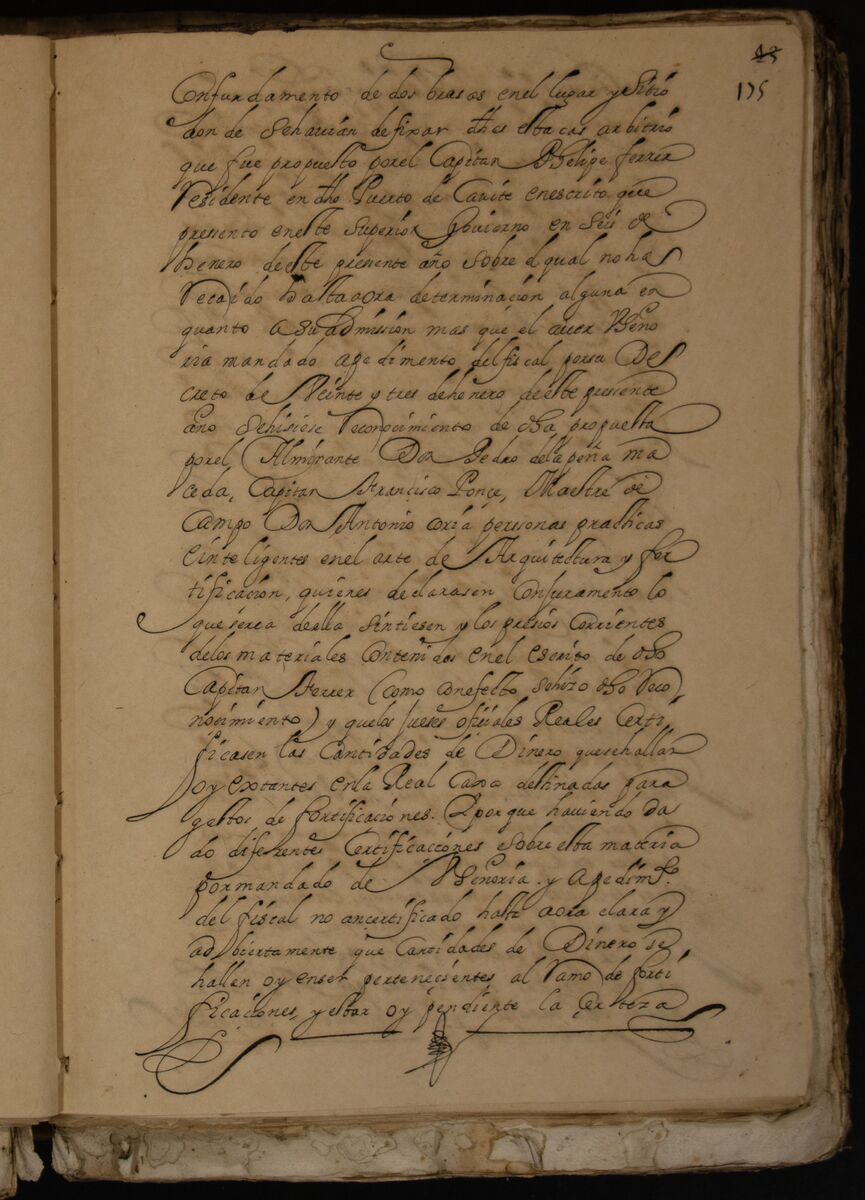 43
175
Confundamento de dos brasas enel lugar y Sitio
don de Sehavian defixar dhas estacas arbitrio
que fue propuesto porel Capitan Phelipe ferrer
Residente en dho Puerto de Cavite enescrito que
presento eneste Superior Govierno en Seis de
henero deeste presente año sobre el qual noha
Recaido hastaaora determinacion alguna en
quanto asuadmission mas que el aver VSeño
ria mandado apedimento delfiscal porsu De
creto de Veinte y tres dehenero deeste presente
año Sehisiese Reconocimiento de dha propuesta
porel Almirante Don Pedro delapeña ma
ceda, Capitan Francisco Ponçe, Maestre de
Campo Don Antonio coria personas practicas
einteligentes enel arte de Arquitectura y for
tificacion, quienes declarasen Conjuramento lo
queserca deella Sintiesen y los presios Corrientes
delos materiales Contenidos enel escrito de dho
Capitan Ferrer (como conefecto sehizo dho Reco
nocimiento) y quelos jueses ofisiales Reales Certi
ficasen las Cantidades de Dinero quesehallan
oy extantes enla Real Caxa destinadas para
gastos de fortificaciones. Yporque haviendo da
do diferentes Certificacciones sobre esta materia
pormandado de VSeñoria y Apedimto.
del fiscal no ancertificado hasta aora clara y
adbiertamente que Cantidades de Dinero se
hallen oy enser pertenecientes al Ramo de forti
ficaciones, y estar oy pendiente la Certeza